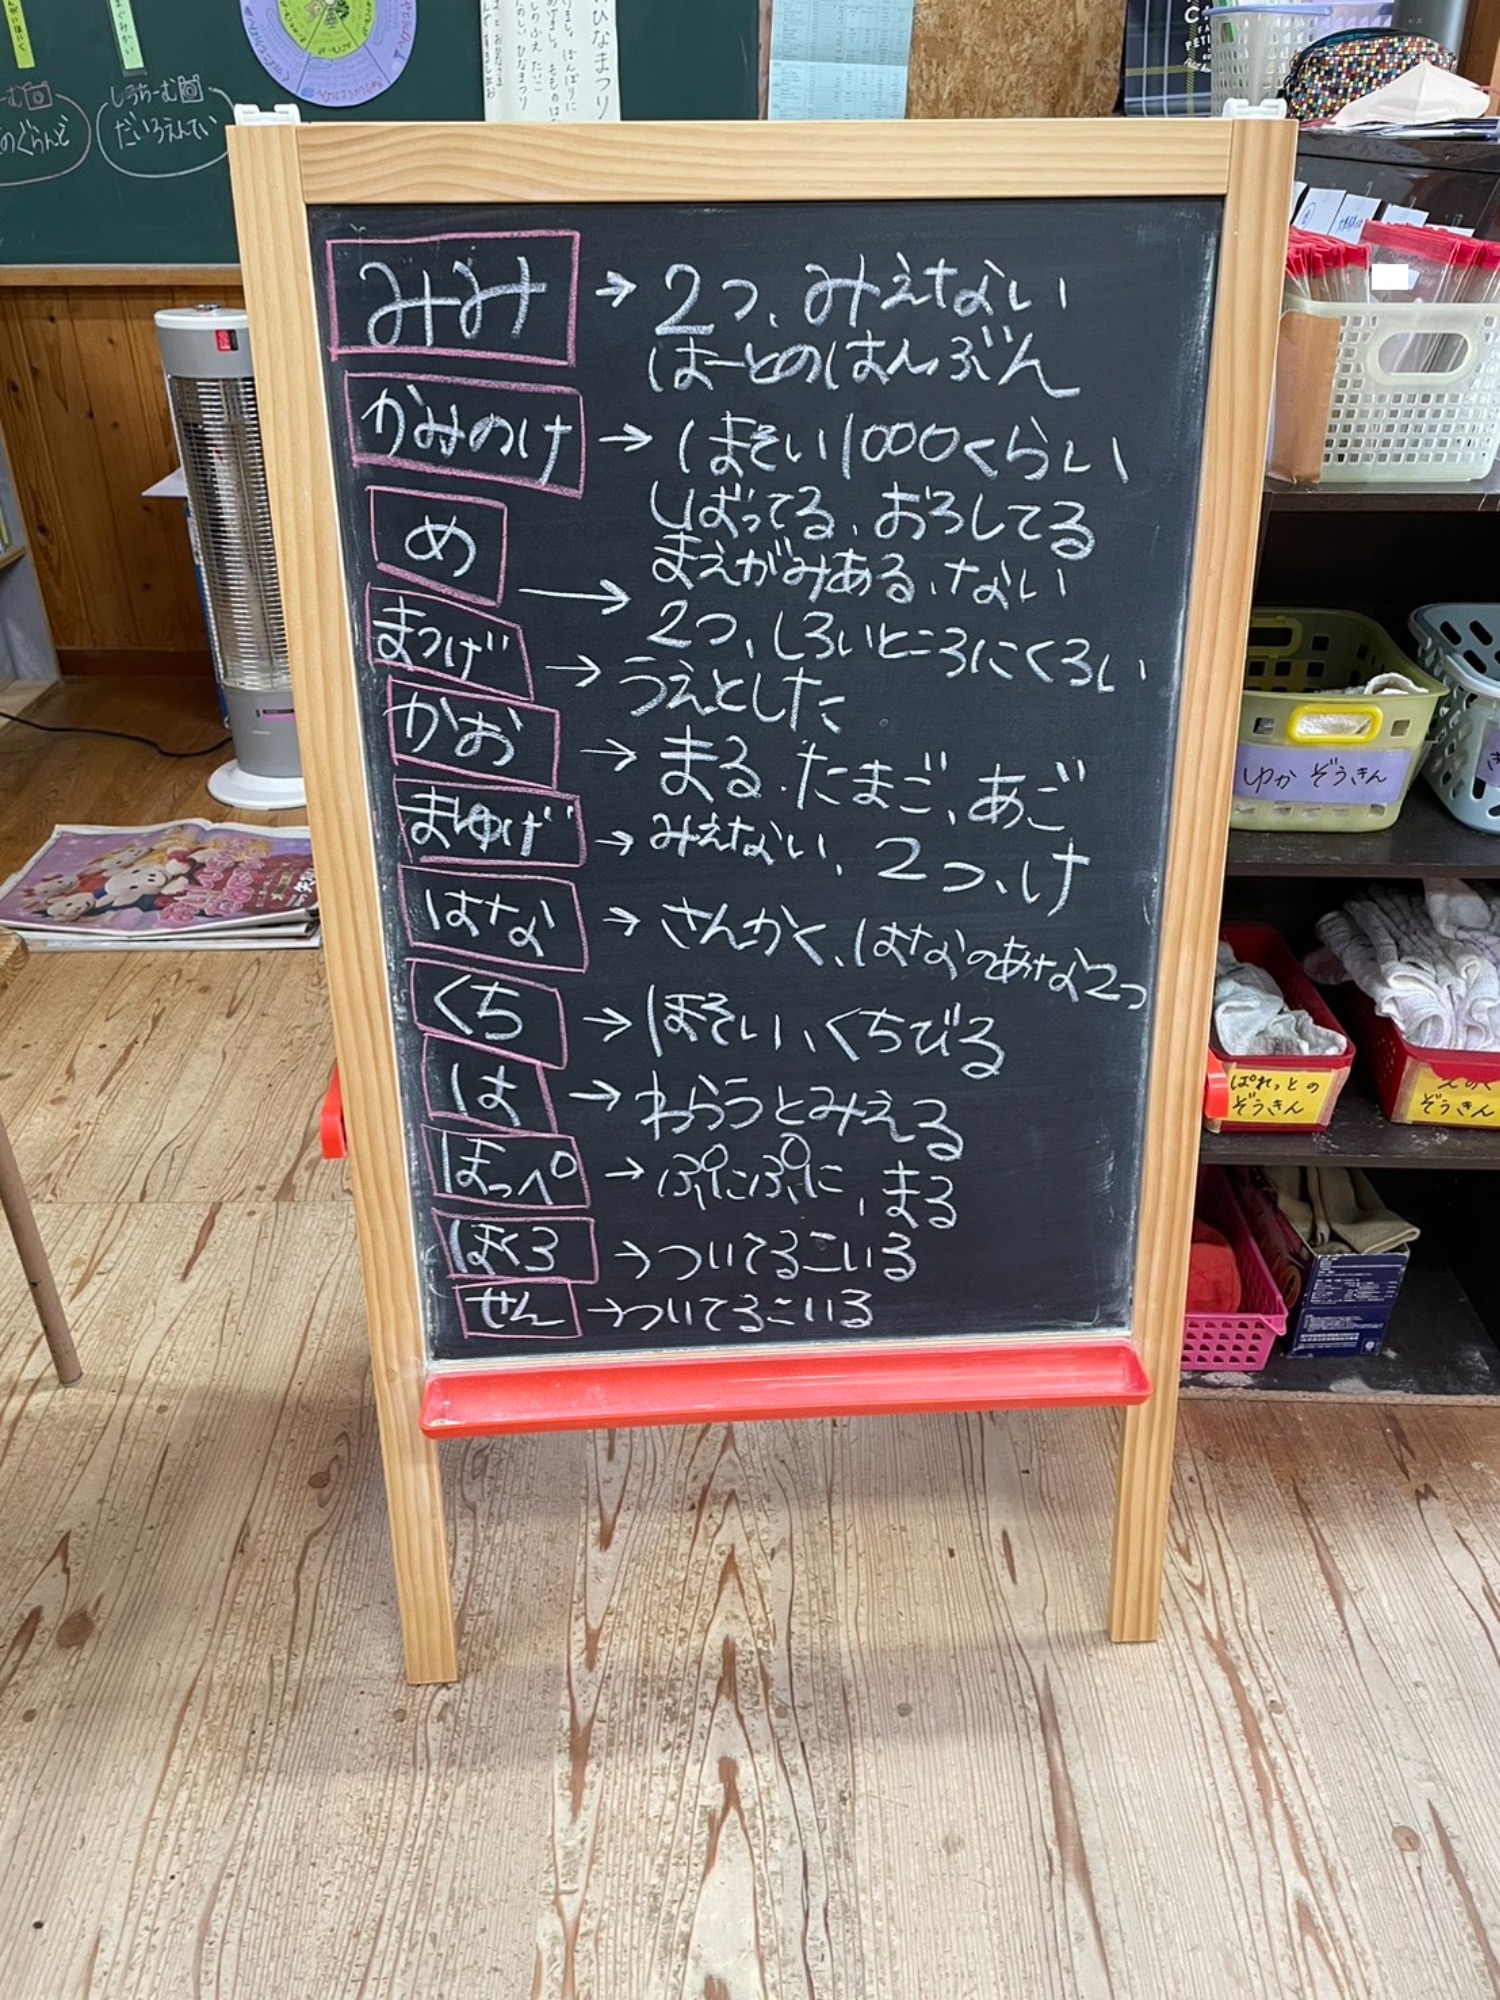 しろちーむ
だいろえんてい
のぐらんど
ひなまつり
みみ → 2つ、みえない
はーとのはんぶん
かみのけ → ほそい1000くらい
しばってる、おろしてる
まえがみある、ない
め → 2つ、しろいところにくろい
まつげ → うえとした
かお → まる、たまご、あご
まゆげ → みえない、2つ、け
はな → さんかく、はなのあな2つ
くち → ほそい、くちびる
は → わらうとみえる
ほっぺ → ぷにぷに、まる
ほくろ → ついてるこいる
せん → ついてるこいる
ゆか ぞうきん
ぱれっとの
ぞうきん
えのぐ
ぞうきん